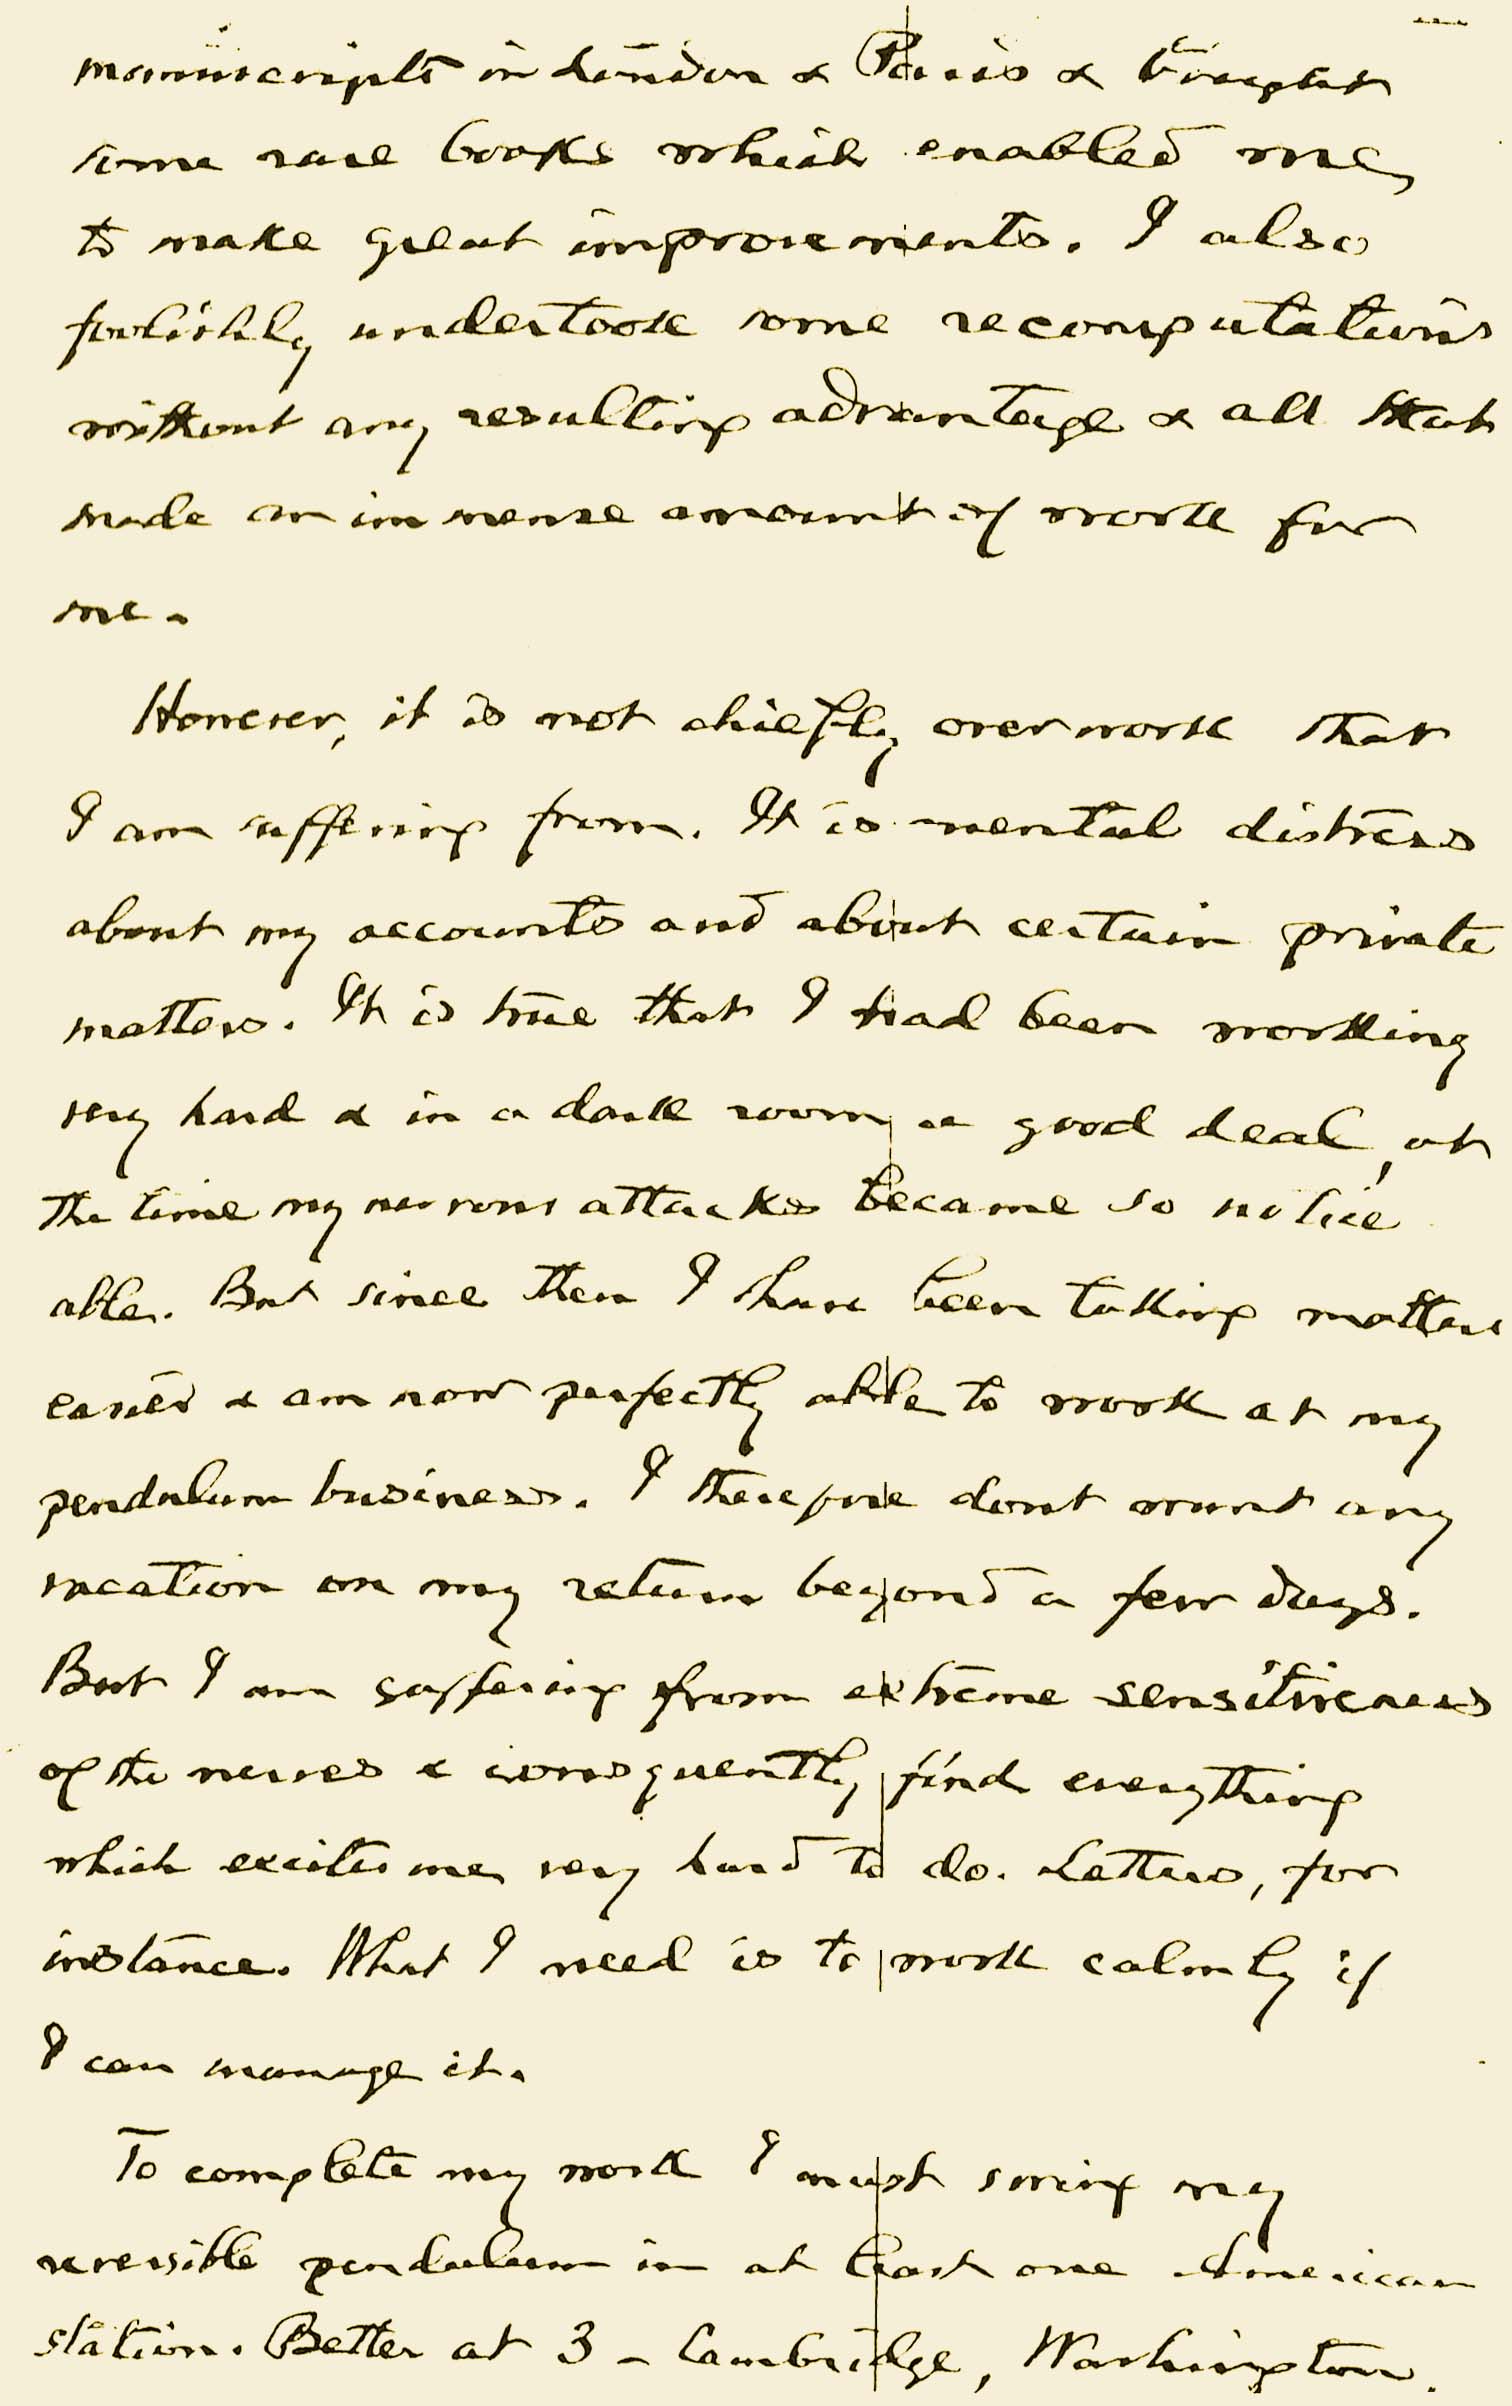 manuscripts in London & Paris & bought
some rare books which enabled me
to make great improvements. I also
foolishly undertook some recomputations
without any resulting advantage & all that
made an immense amount of work for
me.
However, it is not chiefly overwork that
I am suffering from. It is mental distress
about my accounts and about certain private
matters. It is true that I had been working
very hard & in a dark room a good deal, at
the time my nervous attacks became so notice
able. But since then I have been taking matters
easier & am now perfectly able to work at my
pendulum business. I therefore dont want any
vacation on my return beyond a few days.
But I am suffering from extreme sensitiveness
of the nerves & consequently find everything
which excites me very hard to do. Letters, for
instance. What I need is to work calmly if
I can manage it.
To complete my work I must swing my
reversible pendulum in at least one American
station. Better at 3 – Cambridge, Washington.